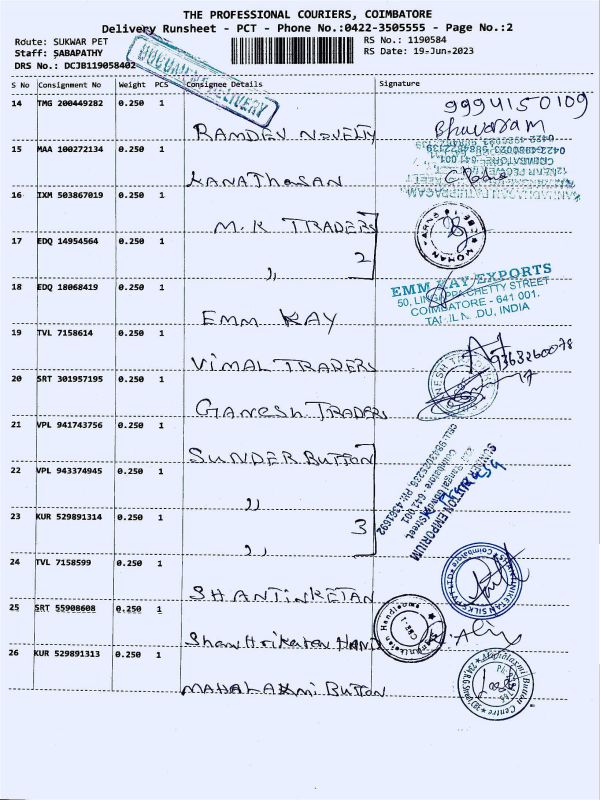 THE PROFESSIONAL COURIERS, COIMBATORE
Delivery Runsheet - PCT - Phone No.:0422-3505555 - Page No.:2
Route: SUKWAR PET
RS No.: 1190584
Staff: SABAPATHY
RS Date: 19-Jun-2023
DRS No.: DCJB119058402
DOCUMENT DELIVERY
S No Consignment No Weight PCS Consignee Details Signature
14 TMG 200449282 0.250 1
9994150109
RAMDEV NOVELTY
15 MAA 100272134 0.250 1
KANATHASAN
16 IXM 503867019 0.250 1
M.K TRADERS
17 EDQ 14954564 0.250 1
2
,,
18 EDQ 18068419 0.250 1
EMM KAY EXPORTS
50, LINGAPPA CHETTY STREET
COIMBATORE - 641 001.
INDIA
EMM KAY
19 TVL 7158614 0.250 1
9363260078
VIMAL TRADERS
20 SRT 301957195 0.250 1
GANESH TRADERS
21 VPL 941743756 0.250 1
SUNDER BUTTON
22 VPL 943374945 0.250 1
,,
BUTTON EMPORIUM
Coimbatore - 641 001.
23 KUR 529891314 0.250 1
3
,,
24 TVL 7158599 0.250 1
SHANTINKETAN
25 SRT 55908608 0.250 1
26 KUR 529891313 0.250 1
Mahalaxmi Button Centre
MAHALAXMI BUTTON